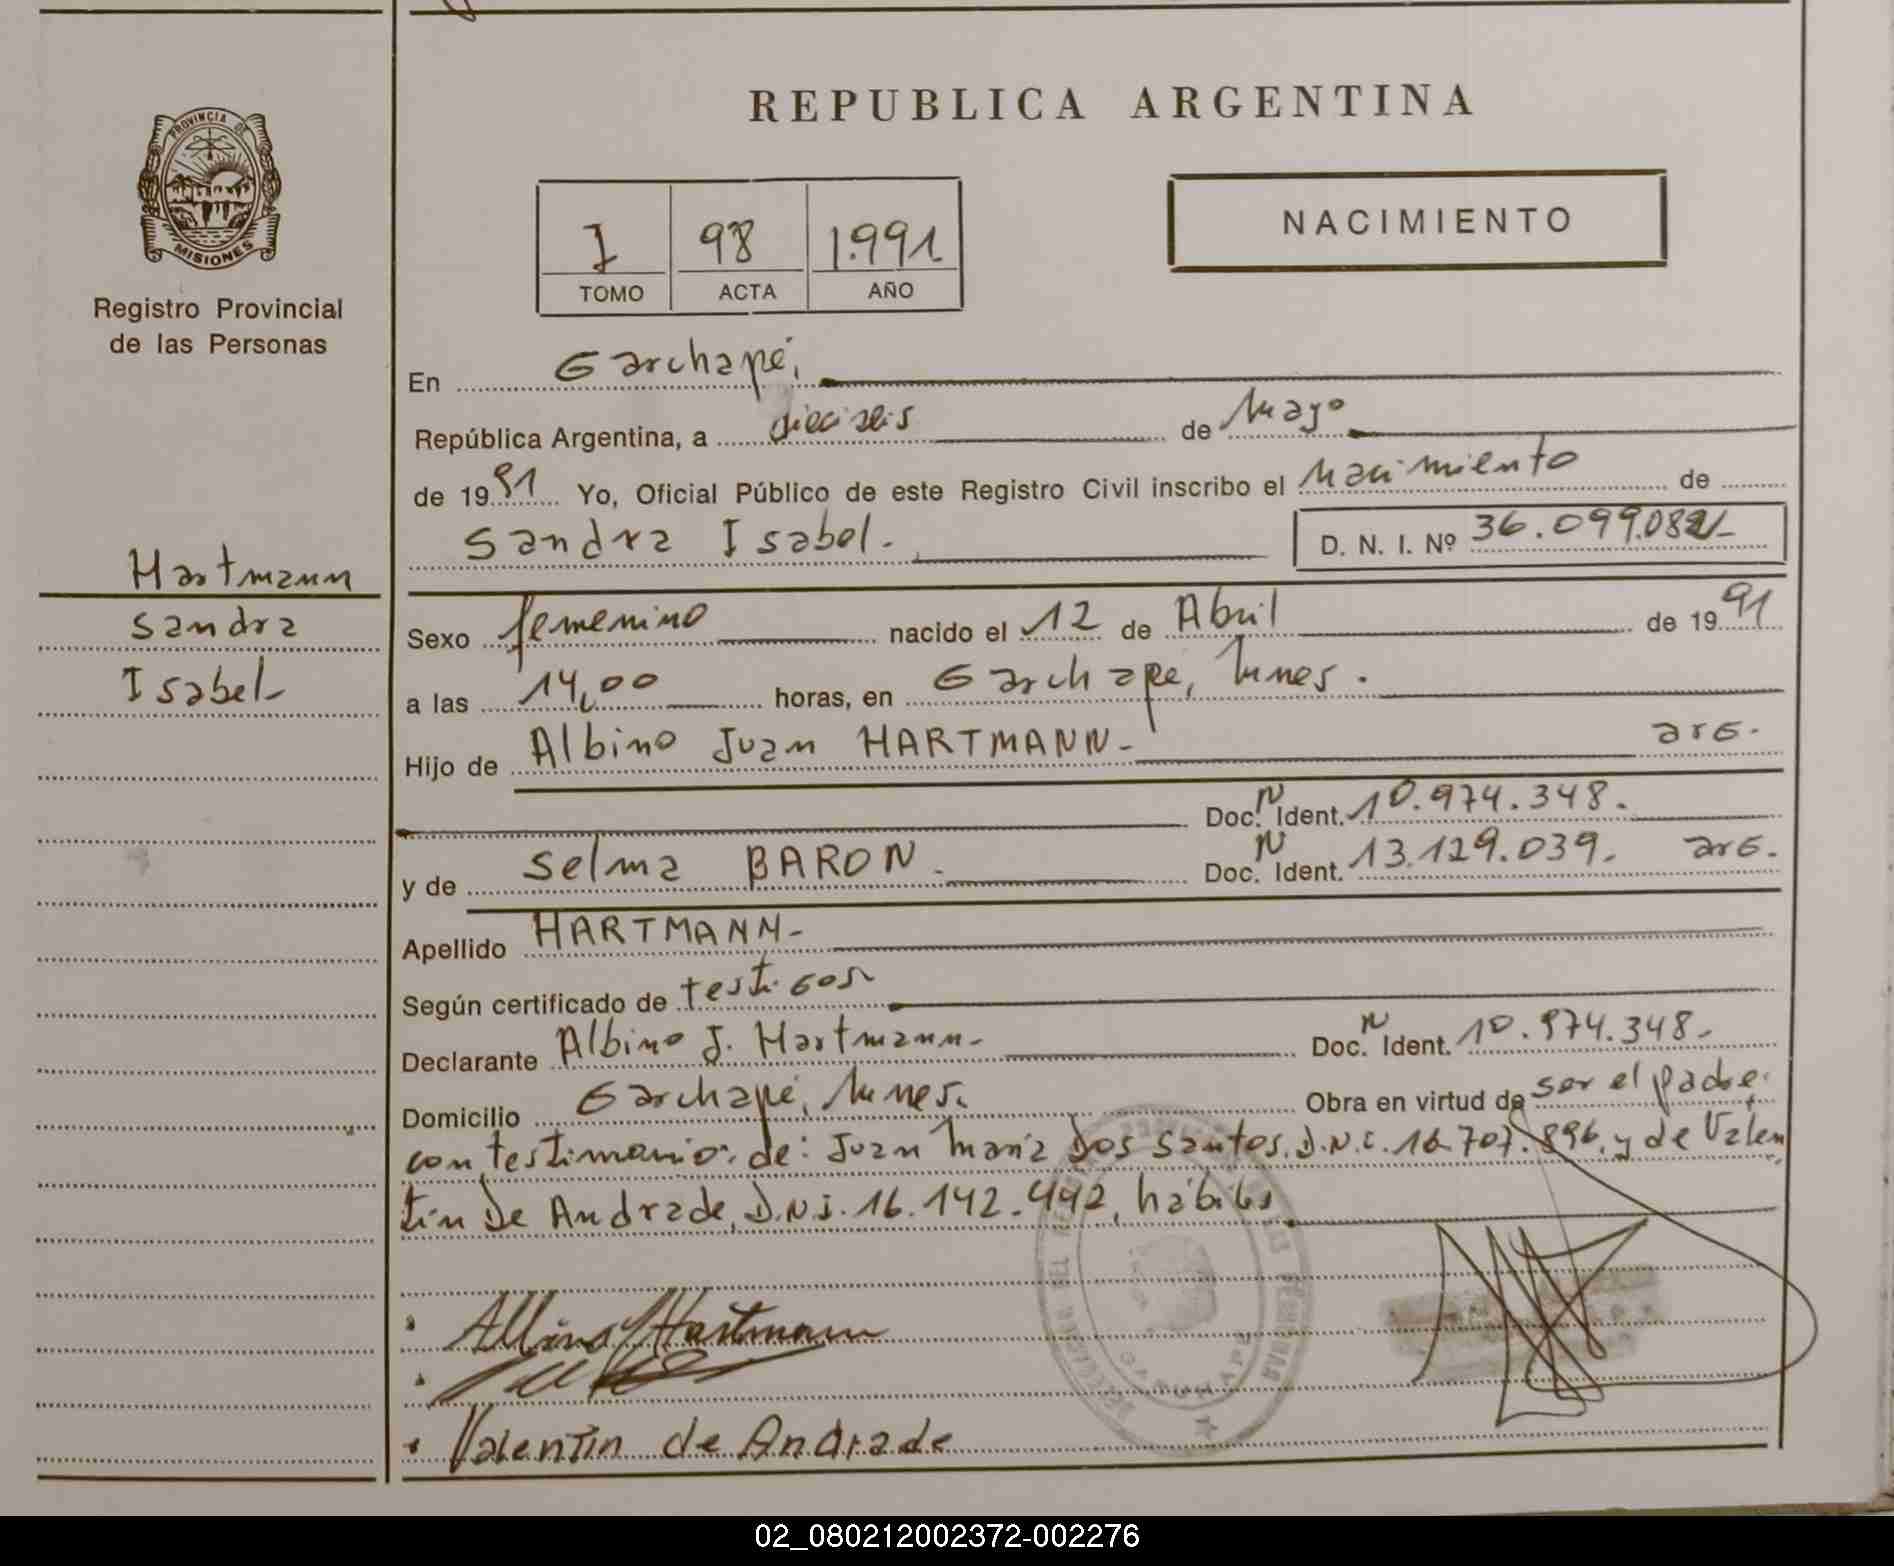 REPUBLICA ARGENTINA
PROVINCIA DE
MISIONES
Registro Provincial
de las Personas
I 98 1.991
TOMO ACTA AÑO
NACIMIENTO
En Garchapé,
República Argentina, a dieciseis de Mayo
de 1991 Yo, Oficial Público de este Registro Civil inscribo el Nacimiento de
Sandra Isabel.
D. N. I. Nº 36.099.082
Hartmann
Sandra
Isabel
Sexo femenino nacido el 12 de Abril de 1991
a las 14,00 horas, en Garchapé, Mnes.
Hijo de Albino Juan HARTMANN. arg.
Doc. N Ident. 10.974.348.
y de Selma BARON. Doc. N Ident. 13.129.039. arg.
Apellido HARTMANN
Según certificado de testigos
Declarante Albino J. Hartmann Doc. N Ident. 10.974.348.
Domicilio Garchapé, Mnes. Obra en virtud de ser el padre.
con testimonio de: Juan Maria Dos Santos, D.N.I. 16.707.896, y de Valen
tin De Andrade, D.N.I. 16.142.442, hábiles
Albino J Hartmann
Valentin de Andrade
GARUHAPE
02_080212002372-002276